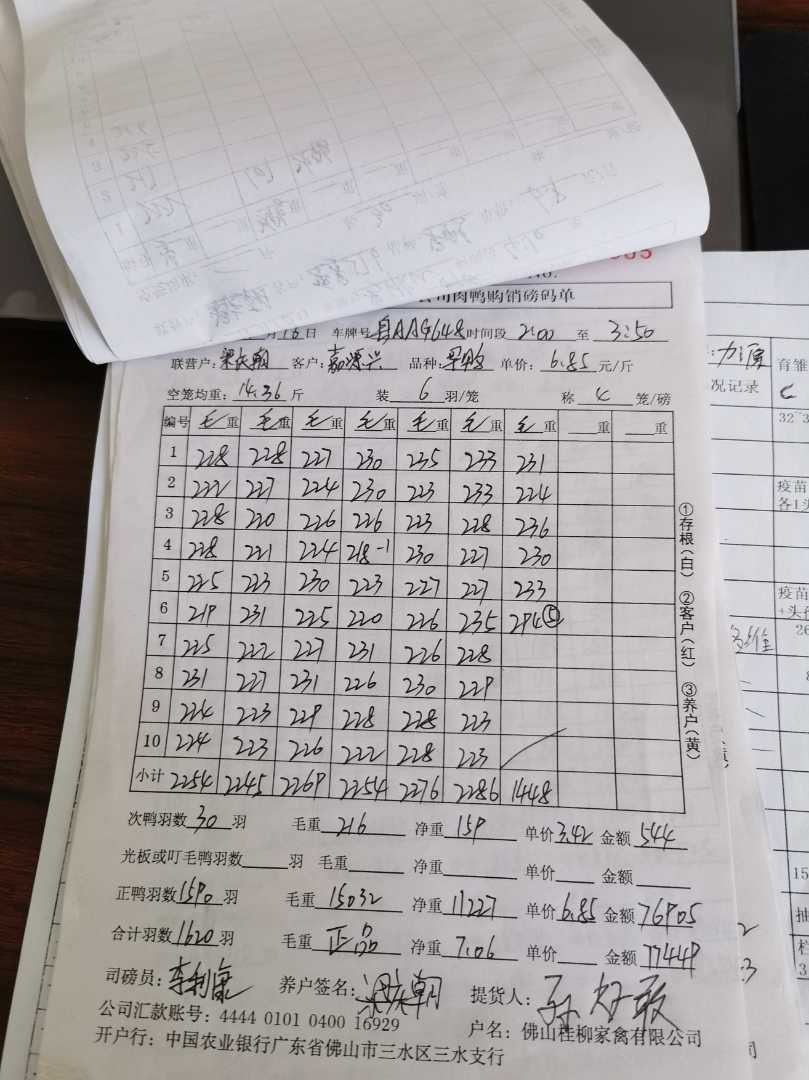 公司肉鸭购销磅码单
月16日 车牌号 粤AAG648 时间段 2:00 至 3:50
联营户: 梁庆朝 客户: 嘉源兴 品种: 单价: 6.85 元/斤
空笼均重: 14.36 斤 装 6 羽/笼 称 4 笼/磅
编号 毛重 毛重 毛重 毛重 毛重 毛重 毛重 重 重
1 228 228 227 230 235 233 231
2 222 227 224 230 223 233 224
3 228 220 226 226 223 228 236
4 228 221 224 218-1 230 227 230
5 225 223 230 223 227 227 233
6 219 231 225 220 226 235 294⑤
7 225 222 227 231 226 228
8 231 227 231 226 230 229
9 224 223 229 228 228 223
10 224 223 226 222 228 223
小计 2254 2245 2269 2254 2276 2286 1448
次鸭羽数 30 羽 毛重 216 净重 159 单价 3.42 金额 544
光板或叮毛鸭羽数 羽 毛重 净重 单价 金额
正鸭羽数 1590 羽 毛重 15032 净重 11227 单价 6.85 金额 76905
合计羽数 1620 羽 毛重 正品 净重 7.06 单价 金额 77449
司磅员: 李利康 养户签名: 梁庆朝 提货人:
公司汇款账号: 4444 0101 0400 16929 户名: 佛山桂柳家禽有限公司
开户行: 中国农业银行广东省佛山市三水区三水支行
①存根(白) ②客户(红) ③养户(黄)
育雏
况记录
32
疫苗
各1头
疫苗
26